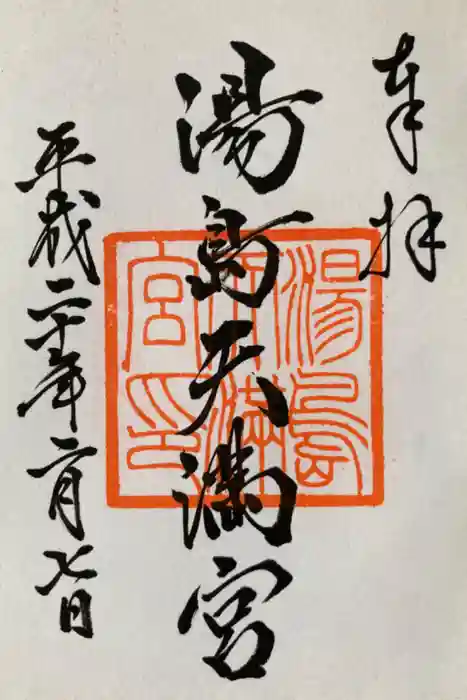 奉拝
湯島天満宮
湯島天満宮印
平成二十年二月七日